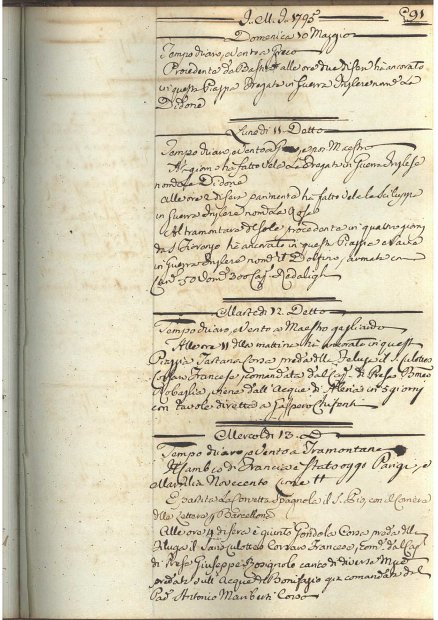 J. M. J. 1795
91
Domenica 10 Maggio
Tempo chiaro, e Vento a Greco
Procedente da Bastia alle ore due di sera ha ancorato
in questa Piaggia Fregata in Guerra Inglese nom.ta La
Didone
Lunedì 11 Detto
Tempo chiaro, e Vento a e poi Maestro
A giorno ha fatto Vela La Fregata in Guerra Inglese
nom.ta La Didone
Alle ore 2 di sera parimenti ha fatto Vela
in Guerra Inglese nom.ta La
Al tramontare del sole procedente in quattro giorni
da S. Fiorenzo ha ancorato in questa Piaggia
in Guerra Inglese nom.to Il armata con
50 Uom. 300 Cap.
Martedì 12 Detto
Tempo chiaro, e Vento a Maestro gagliardo
Alle ore 11 della mattina ha ancorato in quest
Piaggia Tartana Corsa preda della Feluca il Sanculotto
Corsaro Francese comandata dal Cap. di Presa
viene dall'Acque di Aleria in 5 giorni
con tavole diretta a Gasparo
Mercoldì 13 D.
Tempo chiaro, e Vento a Tramontana
Il Cambio di Francia è Stato oggi Parigi, e
Marsilia Novecento
È partita La Corvetta Spagnola il S. Pio, con il Corriere
delle Lettere p Barcellona
Alle ore 4 di sera è giunto Gondola Corsa preda della
Feluga il Sanculotto Corsaro Francese, Com. dal Cap.
di Presa Giuseppe carico di diverse
predata sull'Acque di Bonifazio già comandata del
Pad. Antonio Corso